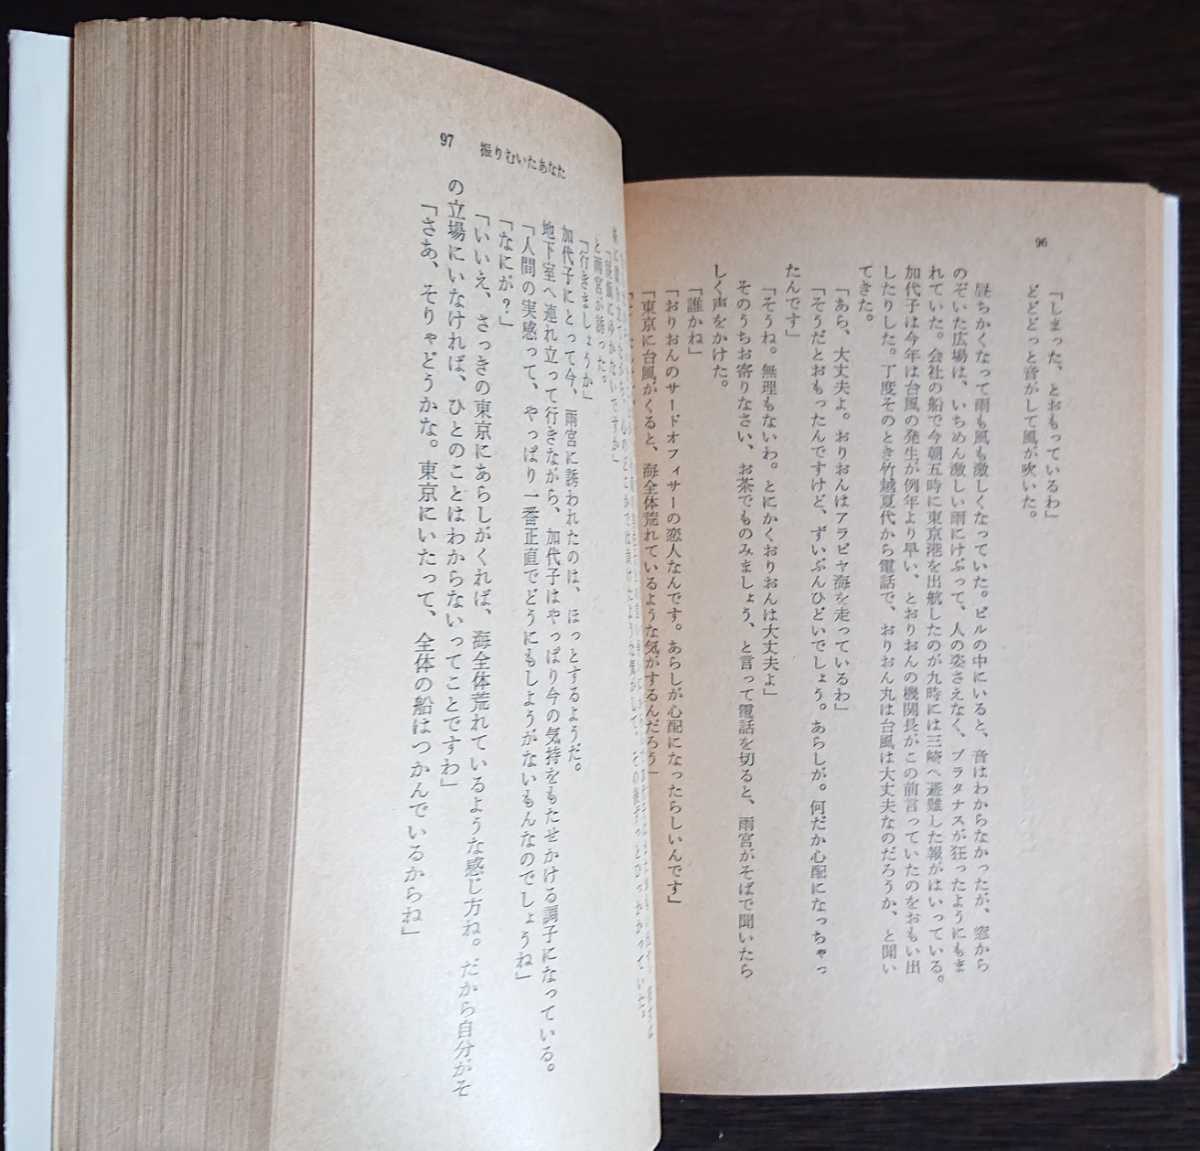 96
「しまった、とおもっているわ」
どどどっと音がして風が吹いた。
昼ちかくなって雨も風も激しくなっていた。ビルの中にいると、音はわからなかったが、窓から
のぞいた広場は、いちめん激しい雨にけぶって、人の姿さえなく、プラタナスが狂ったようにもま
れていた。会社の船で今朝五時に東京港を出航したのが九時には三崎へ避難した報がはいっている。
加代子は今年は台風の発生が例年より早い、とおりおんの機関長がこの前言っていたのをおもい出
したりした。丁度そのとき竹越夏代から電話で、おりおん丸は台風は大丈夫なのだろうか、と聞い
てきた。
「あら、大丈夫よ。おりおんはアラビヤ海を走っているわ」
「そうだとおもったんですけど、ずいぶんひどいでしょう。あらしが。何だか心配になっちゃっ
たんです」
「そうね。無理もないわ。とにかくおりおんは大丈夫よ」
そのうちお寄りなさい、お茶でものみましょう、と言って電話を切ると、雨宮がそばで聞いたら
しく声をかけた。
「誰かね」
「おりおんのサードオフィサーの恋人なんです。あらしが心配になったらしいんです」
「東京に台風がくると、海全体荒れているような気がするんだろう」
97 振りむいたあなた
と雨宮が誘った。
「行きましょうか」
加代子にとって今、雨宮に誘われたのは、ほっとするようだ。
地下室へ連れ立って行きながら、加代子はやっぱり今の気持をもたせかける調子になっている。
「人間の実感って、やっぱり一番正直でどうにもしようがないもんなのでしょうね」
「なにが？」
「いいえ、さっきの東京にあらしがくれば、海全体荒れているような感じ方ね。だから自分がそ
の立場にいなければ、ひとのことはわからないってことですわ」
「さあ、そりゃどうかな。東京にいたって、全体の船はつかんでいるからね」